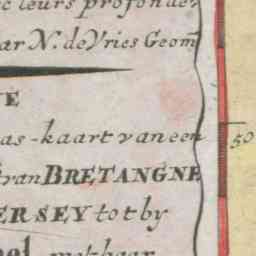 leurs profonde
ar N. de Vries Geom
E
as-kaart van een
van BRETANGNE
50
ERSEY tot by